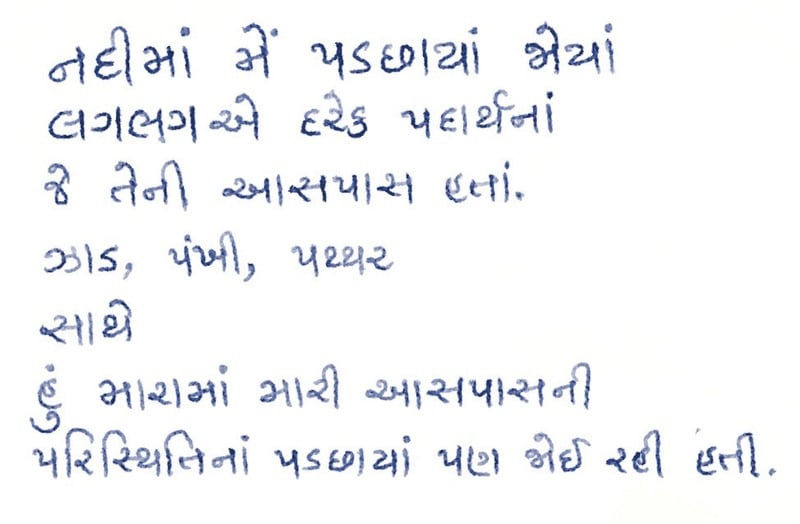 નદીમાં મેં પડછાયાં જોયાં
લગભગ એ દરેક પદાર્થનાં
જે તેની આસપાસ હતાં.
ઝાડ, પંખી, પથ્થર
સાથે
હું મારામાં મારી આસપાસની
પરિસ્થિતિનાં પડછાયાં પણ જોઈ રહી હતી.